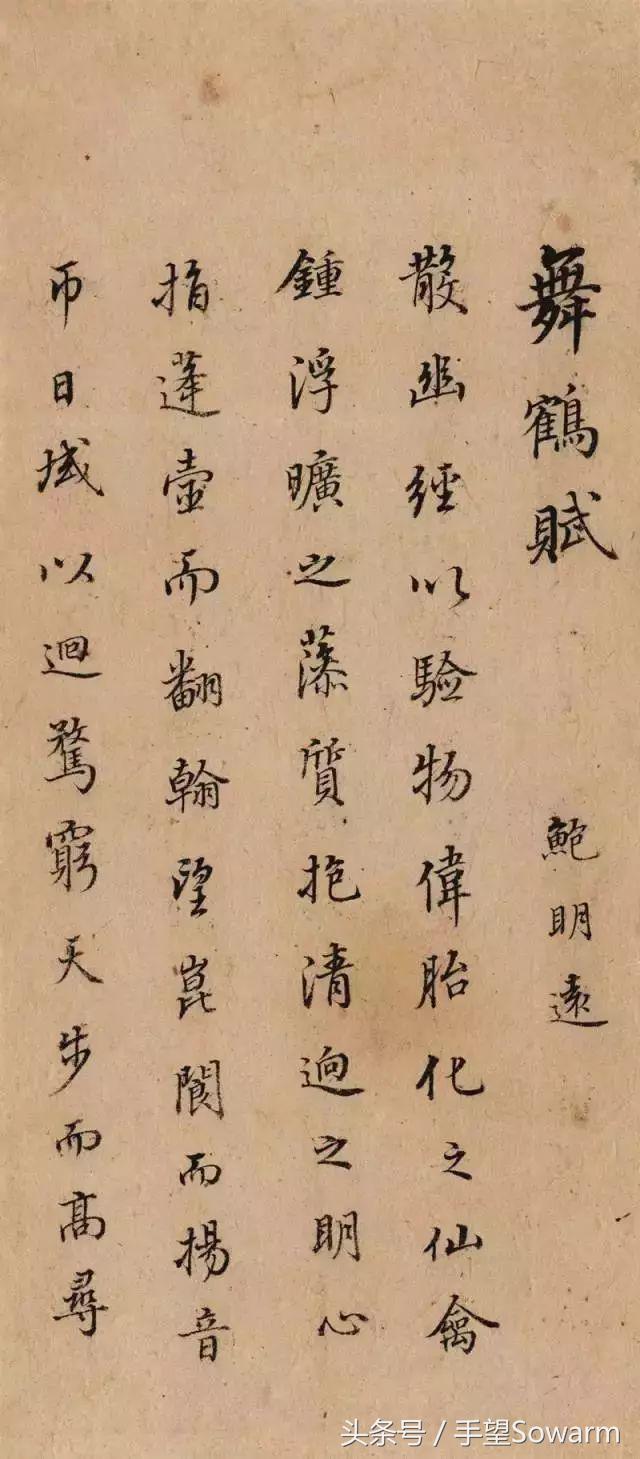 舞鶴賦 鮑明遠
散幽經以驗物偉胎化之仙禽
鍾浮曠之藻質抱清迥之明心
指蓬壺而翻翰望崑閬而揚音
帀日域以迴騖窮天步而高尋
头条号 / 手望Sowarm